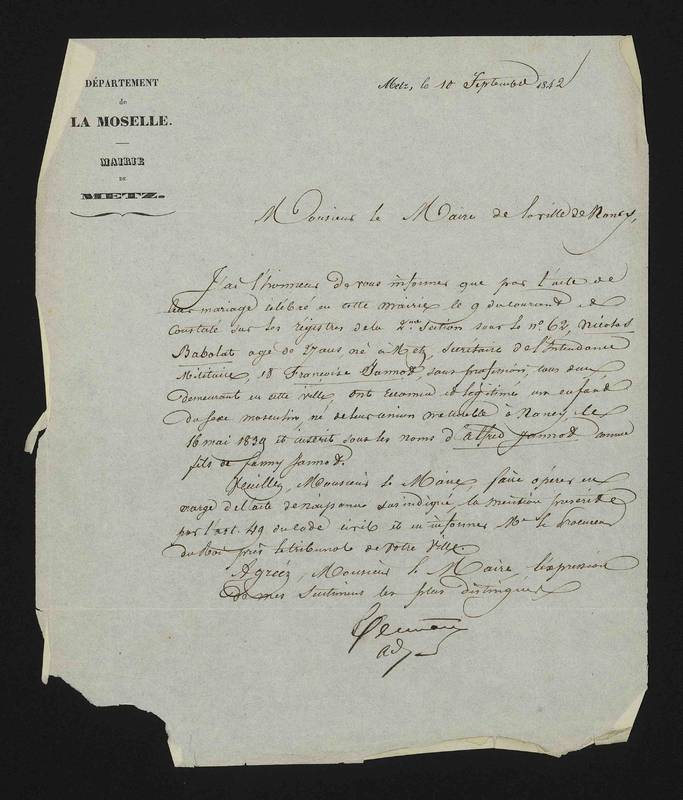 DÉPARTEMENT
de
LA MOSELLE.
MAIRIE
DE
METZ.
Metz, le 10 Septembre 1842
Monsieur le Maire de la ville de Nancy,
J'ai l'honneur de vous informer que par l'acte de
leur mariage célébré en cette mairie le 9 du courant et
Constaté sur les régistres de la 2me Section sous le no. 62, Nicolas
Babolat agé de 27 ans né à Metz, Secretaire de l'Intendance
Militaire, et Françoise Jannot, sans profession, tous deux
demeurant en cette ville, ont reconnu et légitimé un enfant
du sexe masculin né de leur union naturelle à Nancy, le
16 mai 1839 et inscrit sous les noms d'Alfred Jannot comme
fils de fanny Jannot.
Veuillez, Monsieur le Maire, faire opérer en
marge de l'acte de naissance susindiqué, la mention prescrite
par l'art. 49 du code civil et en informer Mr le Procureur
du Roi près le tribunal de votre Ville.
Agréez, Monsieur le Maire, l'expression
de mes Sentimens les plus distingués
adj